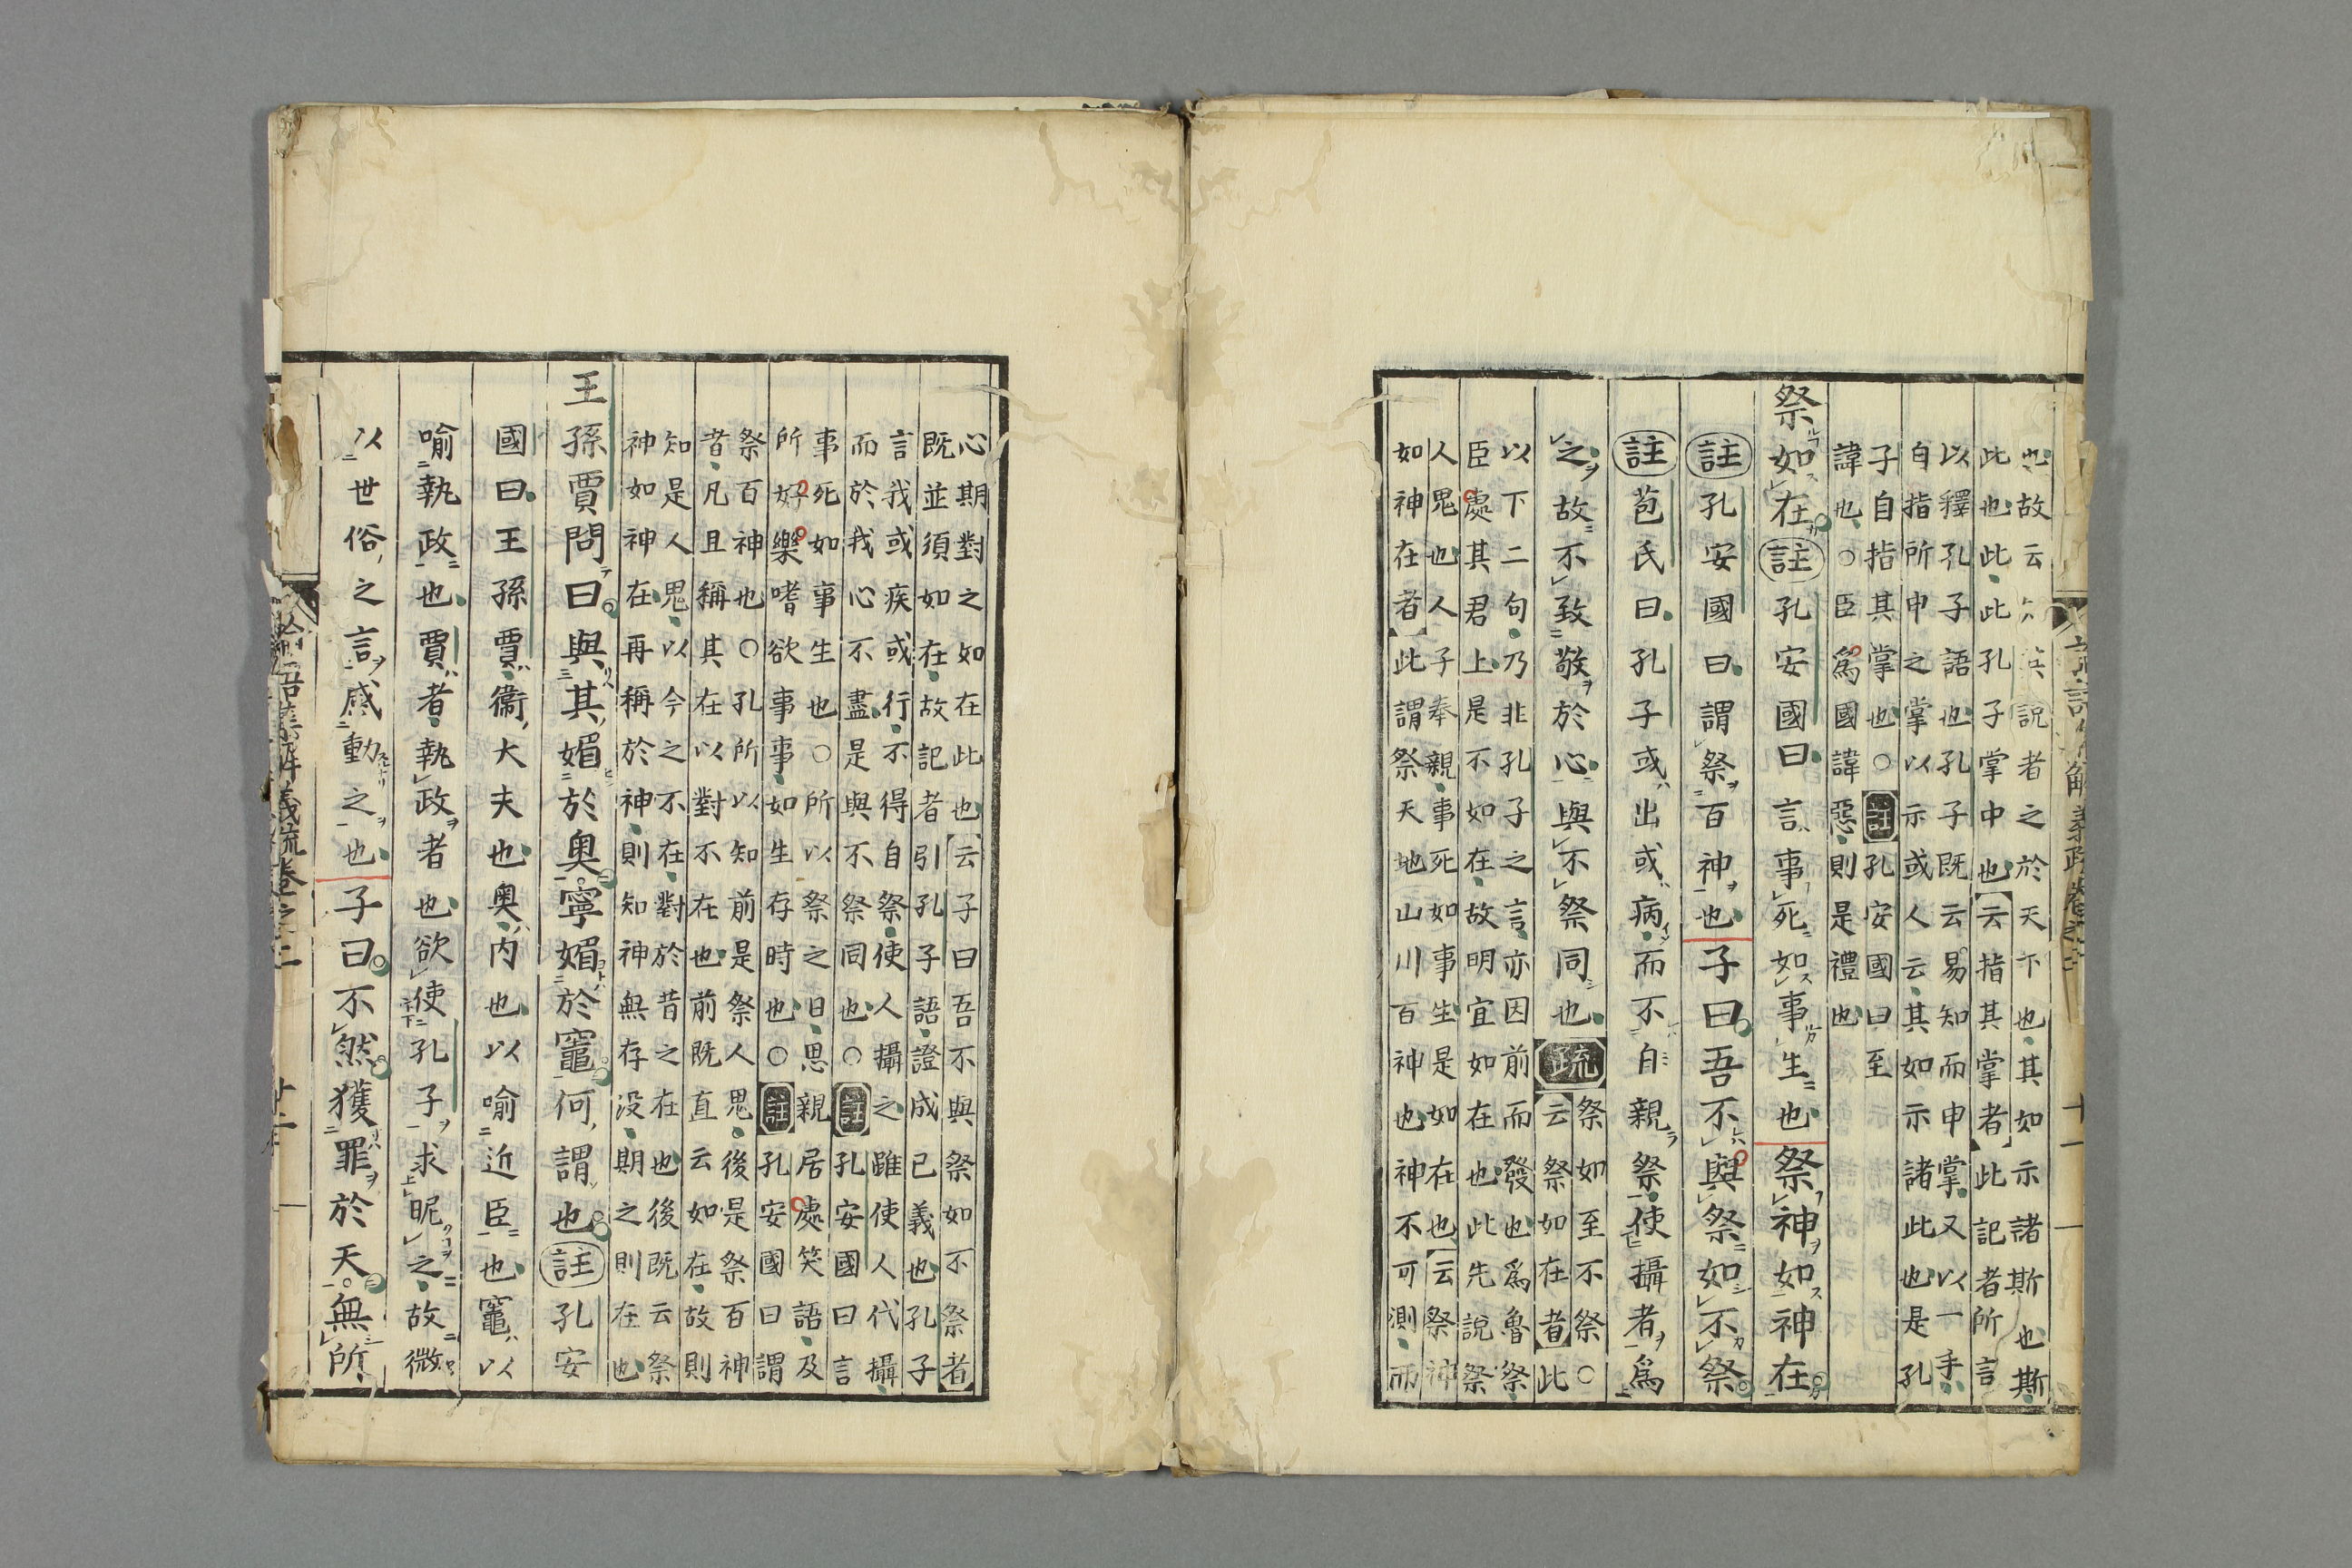 也故云 説者之於天下也其如示諸斯也斯
此也此此孔子掌中也云指其掌者此記者所言
以釋孔子語也孔子既云易知而申掌又以一手
自指所申之掌以示或人云其如示諸此也是孔
子自指其掌也○註孔安國曰至
諱也○臣為國諱惡則是禮也
祭如在註孔安國曰言事死如事生也祭神如神在
註孔安國曰謂祭百神也子曰吾不與祭如不祭
註苞氏曰孔子或出或病而不自親祭使攝者為
之故不致敬於心與不祭同也疏
祭如至不祭○
云祭如在者此
以下二句乃非孔子之言亦因前而發也為魯祭
臣處其君上是不如在故明宜如在也此先説祭
人鬼也人子奉親事死如事生是如在也云祭神
如神在者此謂祭天地山川百神也神不可測而
心期對之如在此也云子曰吾不與祭如不祭者
既並須如在故記者引孔子語證成已義也孔子
言我或疾或行不得自祭使人攝之雖使人代攝
而於我心不盡是與不祭同也○註孔安國曰言
事死如事生也○所以祭之日思親居處笑語及
所好樂嗜欲事事如生存時也○註孔安國曰謂
祭百神也○孔所以知前是祭人鬼後是祭百神
者凡且稱其在以對不在也前既直云如在故則
知是人鬼以今之不在對於昔之在也後既云祭
神如神在再稱於神則知神無存没期之則在也
王孫賈問曰與其媚於奧寧媚於竈何謂也註孔安
國曰王孫賈衞大夫也奧内也以喻近臣也竈以
喻執政也賈者執政者也欲使孔子求昵之故微
以世俗之言感動之也子曰不然獲罪於天無所